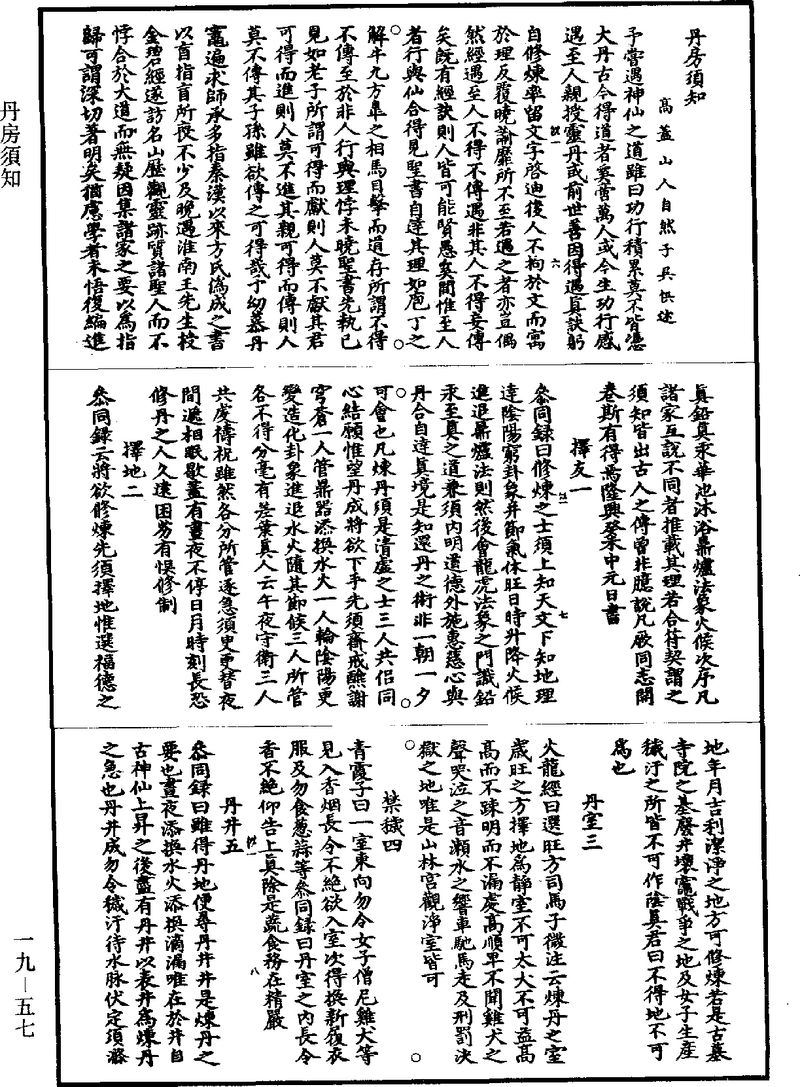 丹房須知
高蓋山人自然子吳悞述
予嘗遇神仙之道雖曰功行積累莫不皆憑
大丹古今得道者奚啻萬人或今生功行感
遇至人親授靈丹或前世善因得遇真訣躬
自修煉率留文字啓迪後人不拘於文而寓
於理反覆曉諭靡所不至若遇之者亦豈偶
然經遇至人不得不傳遇非其人不得妄傳
矣既有經訣則人皆可能賢愚矣間惟至人
者行與仙合得見聖書自達其理如庖丁之
解牛九方臯之相馬目擊而道存所謂不得
不傳至於非人行與理悖未曉聖書先執已
見如老子所謂可得而獻則人莫不獻其君
可得而進則人莫不進其親可得而傳則人
莫不傳其子孫雖欲傳之可得哉予幼慕丹
竈遍求師承多指秦漢以來方氏偽成之書
以盲指盲所役不少及晚遇淮南王先生授
金碧經遂訪名山歷觀靈跡質諸聖人而不
悖合於大道而無疑因集諸家之要以為指
歸可謂深切著明矣猶慮學者未悟復編進
真鉛真汞華池沐浴鼎爐法象火候次序凡
諸家互說不同者推載其理若合符契謂之
須知皆出古人之傳曾非臆說凡厥同志開
卷斯有得焉隆興癸未中元日書
擇友一
參同錄曰修煉之士須上知天文下知地理
達陰陽窮卦象并節氣休旺日時升降火候
進退鼎爐法則然後會龍虎法象之門識鉛
汞至真之道兼須內明道德外施惠慈心與
丹合自達真境是知還丹之術非一朝一夕
可會也凡煉丹須是清虛之士三人共侶同
心結願惟望丹成將欲下手先須齋戒醮謝
穹蒼一人管鼎器添換水火一人輪陰陽更
變造化卦象進退水火隨其節候三人所管
各不得分毫有差葉真人云午夜守衛三人
共虔禱祝雖然各分所管逐急須史更替夜
間遞相眠歇盡有晝夜不停日月時刻長恐
修丹之人久遠困勞有悞修制
擇地二
參同錄云將欲修煉先須擇地惟選福德之
地年月吉利潔淨之地方可修煉若是古墓
寺院之基廢井壞竈戰爭之地及女子生產
穢汙之所皆不可作陰真君曰不得地不可
為也
丹室三
火龍經曰選旺方司馬子微注云煉丹之室
歲旺之方擇地為靜室不可太大不可益高
高而不疎明而不漏處高順卑不聞雞犬之
聲哭泣之音瀨水之響車馳馬走及刑罰決
獄之地唯是山林宮觀淨室皆可
禁穢四
青霞子曰一室東向勿令女子僧尼雞犬等
見入香烟長令不絕欲入室次得換新履衣
服及勿食葱蒜等參同錄曰丹室之內長令
香不絕仰告上真除是蔬食務在精嚴
丹井五
參同錄曰雖得丹地便尋丹井井是煉丹之
要也晝夜添換水火添換滴漏唯在於井自
古神仙上昇之後盡有丹井以表井為煉丹
之急也丹井成勿令穢汙待水脉伏定須滌
丹房須知
一九—五七